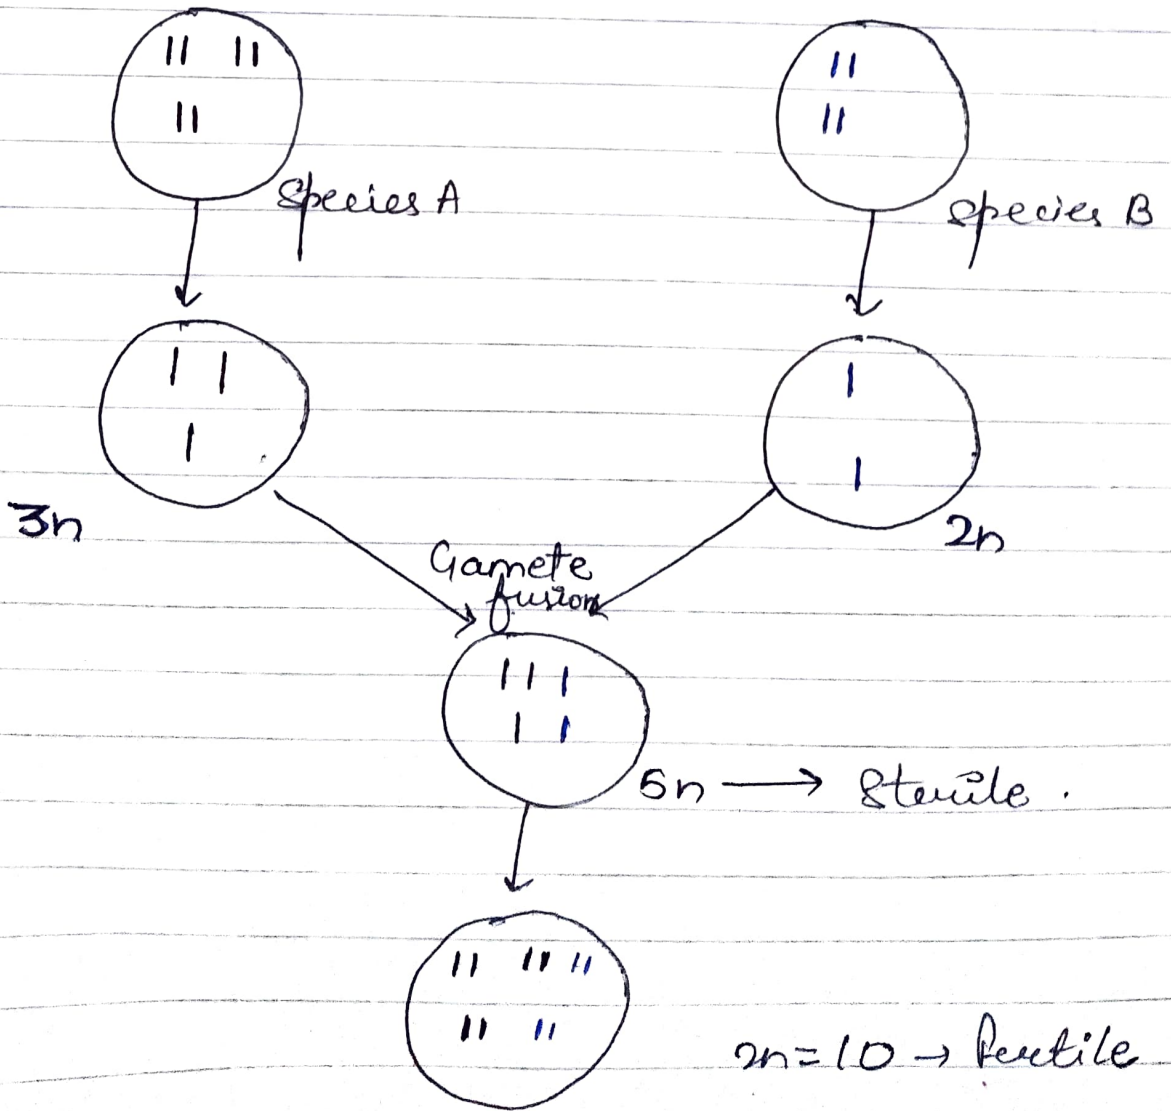 Species A
Species B
3n
2n
Gamete
fusion
5n → Sterile .
2n=10 → Fertile